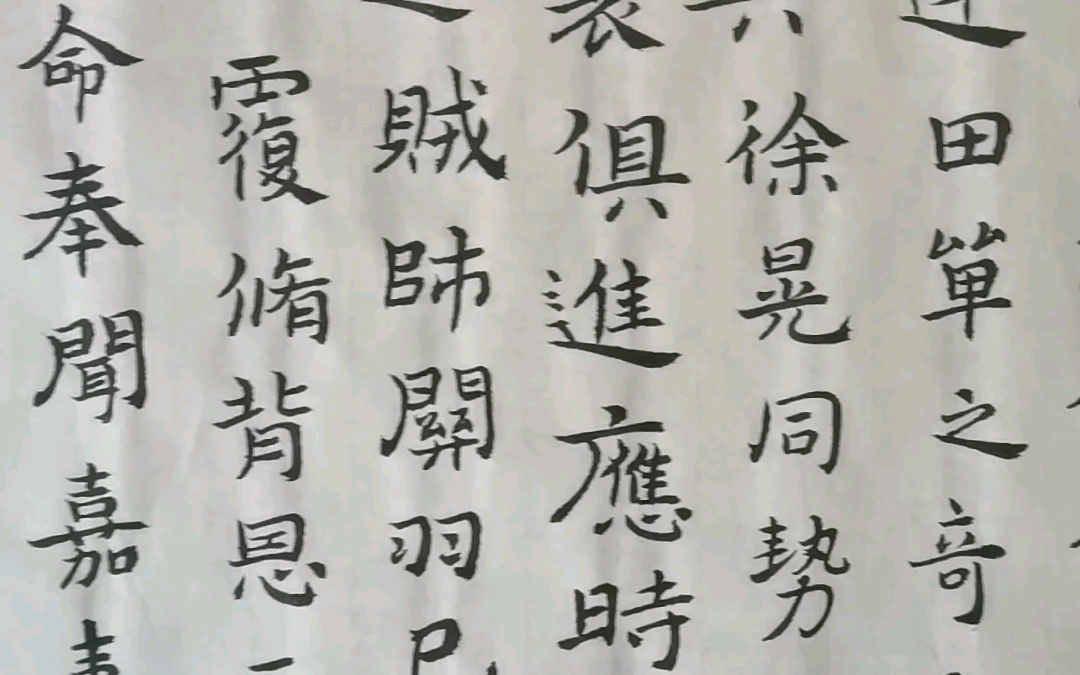 田單之竒
徐晃同勢
俱進應時
賊帥關羽
覆脩背恩
命奉聞嘉